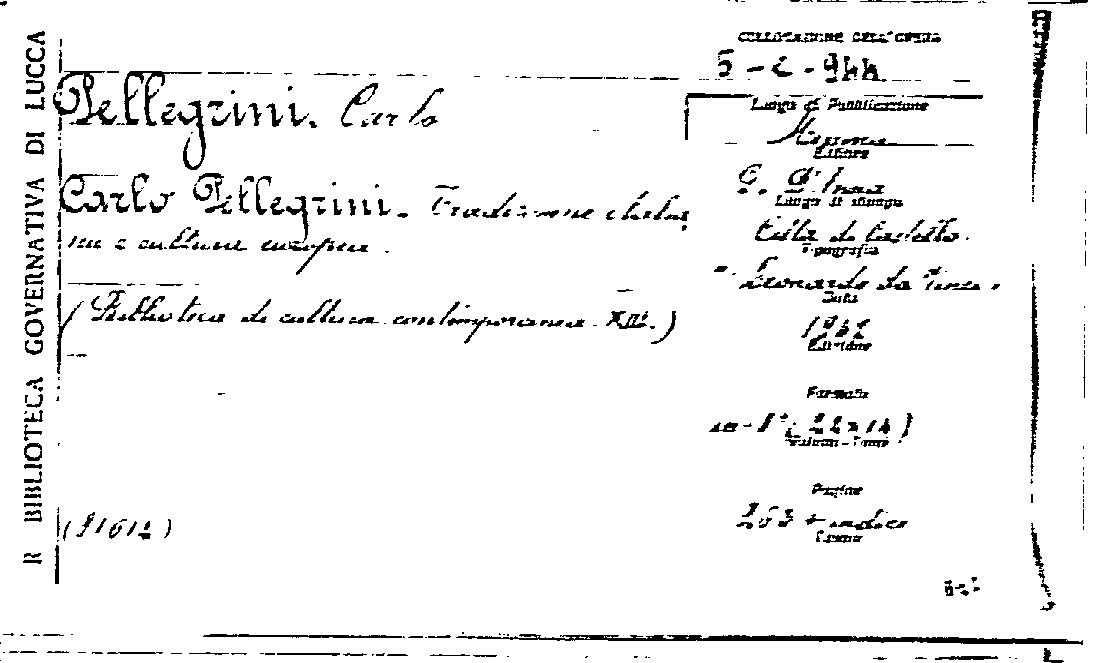 R BIBLIOTECA GOVERNATIVA DI LUCCA
COLLOCAZIONE DELL'OPERA
5-C-944
Pellegrini. Carlo
Luogo di Pubblicazione
Editore
Carlo Pellegrini. Tradizione italia
na e cultura europea.
G. D'Anna
Luogo di stampa
Città di Castello.
Tipografia
"Leonardo da Vinci"
(Biblioteca di cultura contemporanea XIV.)
Data
Edizione
Formato
in-8° (22x14)
Volumi - Tomi
Pagine
263 + indice
(91612)